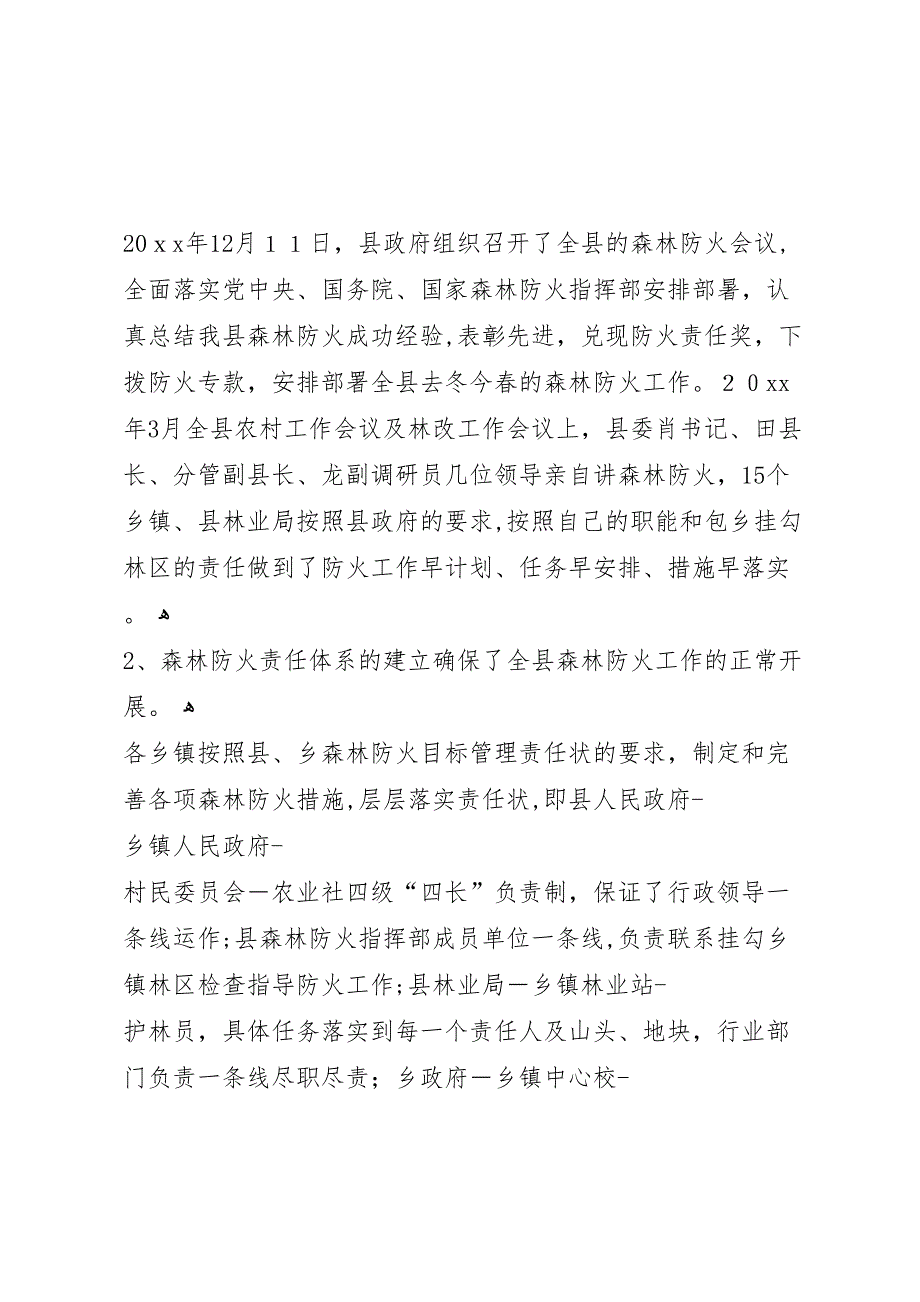 20xx年12月１１日，县政府组织召开了全县的森林防火会议,
全面落实党中央、国务院、国家森林防火指挥部安排部署，认
真总结我县森林防火成功经验,表彰先进，兑现防火责任奖，下
拨防火专款，安排部署全县去冬今春的森林防火工作。２０xx
年3月全县农村工作会议及林改工作会议上，县委肖书记、田县
长、分管副县长、龙副调研员几位领导亲自讲森林防火，15个
乡镇、县林业局按照县政府的要求,按照自己的职能和包乡挂勾
林区的责任做到了防火工作早计划、任务早安排、措施早落实
。ﻫ
2、森林防火责任体系的建立确保了全县森林防火工作的正常开
展。ﻫ
各乡镇按照县、乡森林防火目标管理责任状的要求，制定和完
善各项森林防火措施,层层落实责任状,即县人民政府-
乡镇人民政府-
村民委员会－农业社四级“四长”负责制，保证了行政领导一
条线运作;县森林防火指挥部成员单位一条线,负责联系挂勾乡
镇林区检查指导防火工作;县林业局－乡镇林业站-
护林员，具体任务落实到每一个责任人及山头、地块，行业部
门负责一条线尽职尽责；乡政府－乡镇中心校-